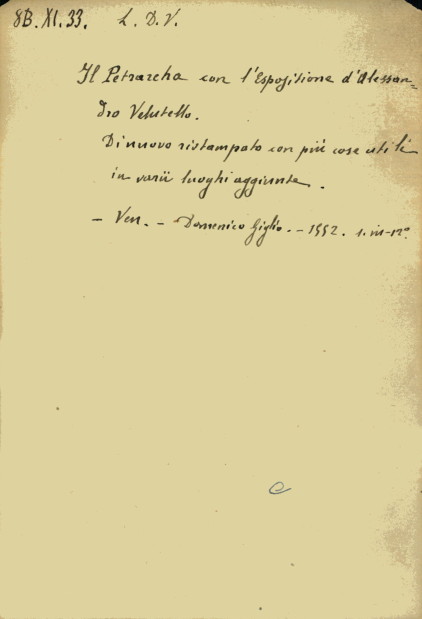 8B. XI. 33. L. D. V.
Il Petrarcha con l'Espositione d'Alessan=
dro Velutello.
Di nuovo ristampato con più cose utili
in varii luoghi aggiunte.
- Ven. - Domenico Giglio. - 1552. 1. in-12°.